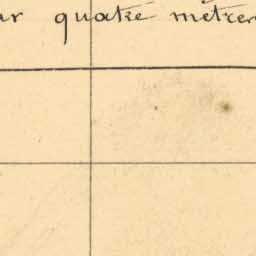 ar quatre mètres